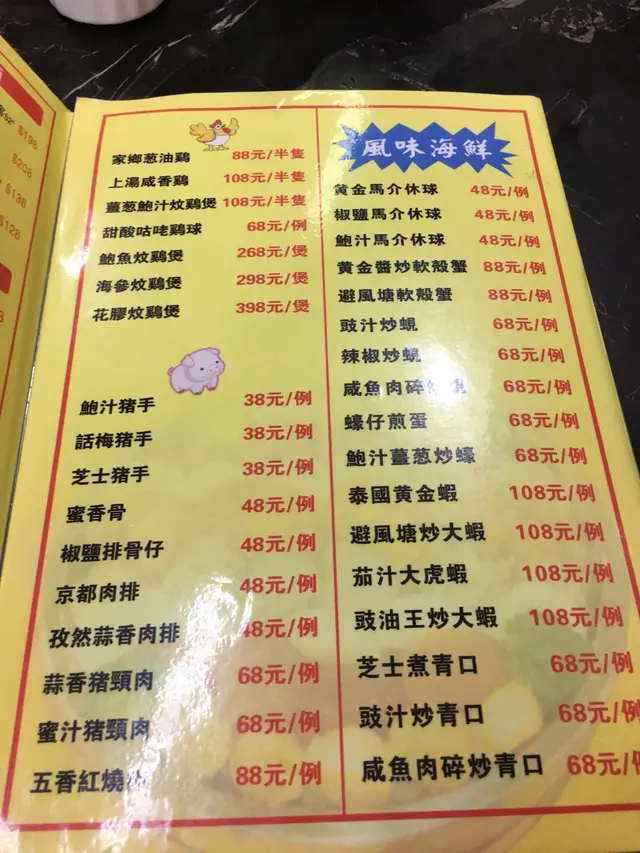 $198
$208
$138
$128
家鄉葱油鷄 88元/半隻
上湯咸香鷄 108元/半隻
薑葱鮑汁炆鷄煲 108元/半隻
甜酸咕咾鷄球 68元/例
鮑魚炆鷄煲 268元/煲
海參炆鷄煲 298元/煲
花膠炆鷄煲 398元/煲
鮑汁猪手 38元/例
話梅猪手 38元/例
芝士猪手 38元/例
蜜香骨 48元/例
椒鹽排骨仔 48元/例
京都肉排 48元/例
孜然蒜香肉排 48元/例
蒜香猪頸肉 68元/例
蜜汁猪頸肉 68元/例
五香紅燒 88元/例
風味海鮮
黄金馬介休球 48元/例
椒鹽馬介休球 48元/例
鮑汁馬介休球 48元/例
黄金醬炒軟殼蟹 88元/例
避風塘軟殼蟹 88元/例
豉汁炒蜆 68元/例
辣椒炒蜆 68元/例
咸魚肉碎 68元/例
蠔仔煎蛋 68元/例
鮑汁薑葱炒蠔 68元/例
泰國黄金蝦 108元/例
避風塘炒大蝦 108元/例
茄汁大虎蝦 108元/例
豉油王炒大蝦 108元/例
芝士煮青口 68元/例
豉汁炒青口 68元/例
咸魚肉碎炒青口 68元/